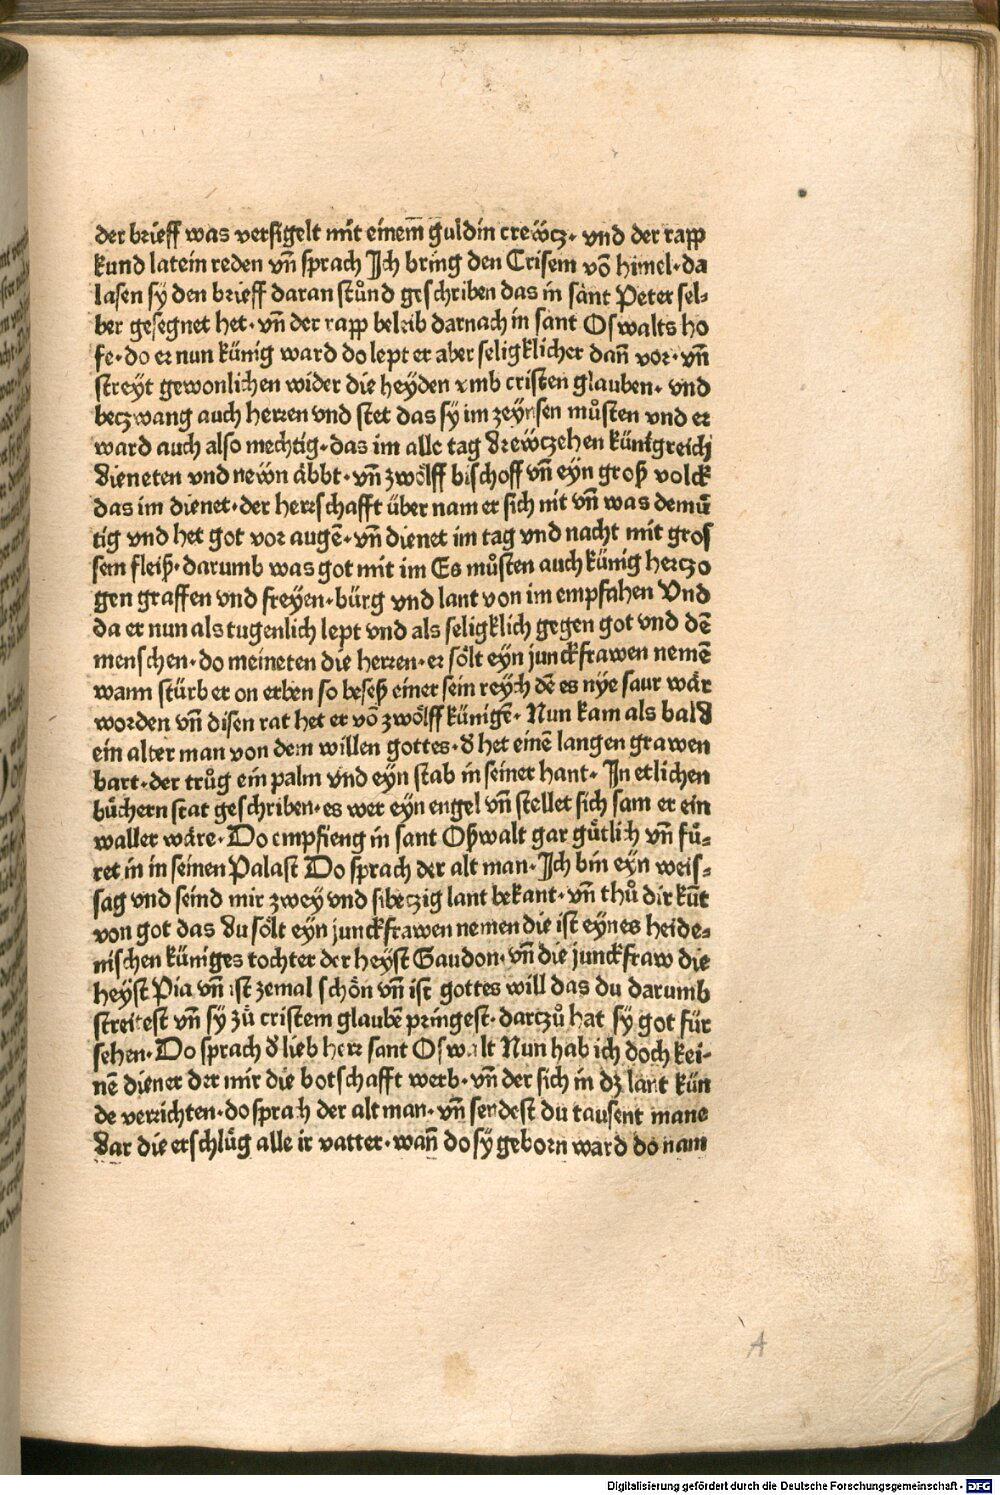 der brieff was versigelt mit einem̄ guldin crewͤcz· vnd der rapp
kund latein reden vn̄ sprach Jch bring den Crisem vō himel· da
lasen sÿ den brieff daran stůnd geschriben das in sant Peter sel⸗
ber gesegnet het· vn̄ der rapp beleib darnach in sant Oswalts ho
fe· do er nun künig ward do lept er aber seligklicher dan̄ vor· vn̄
streÿt gewonlichen wider die heÿden vmb cristen glauben· vnd
beczwang auch herren vnd stet das sÿ im zeÿnsen můsten vnd er
ward auch also mechtig· das im alle tag drewͤczehen künigreich
dieneten vnd newͤn aͤbbt· vn̄ zwoͤlff bischoff vn̄ eÿn groß volck
das im dienet· der herrschafft über nam er sich nit vn̄ was demuͤ
tig vnd het got vor augē· vn̄ dienet im tag vnd nacht mit gros
sem fleiß· darumb was got mit im Es můsten auch künig herczo
gen graffen vnd freÿen· bürg vnd lant von im empfahen Vnd
da er nun als tugenlich lept vnd als seligklich gegen got vnd dē
menschen· do meineten die herren· er soͤlt eÿn junckfrawen nemē
wann stürb er on erben so beseß einer sein reÿch dē es nÿe saur waͤr
worden vn̄ disen rat het er vō zwoͤlff künigē· Nun kam als bald
ein alter man von dem willen gottes· d̕ het einē langen grawen
bart· der trůg ein palm vnd eÿn stab in seiner hant· Jn etlichen
buͤchern stat geschriben· es wer eÿn engel vn̄ stellet sich sam er ein
waller waͤre· Do empfieng in sant Oßwalt gar guͤtlich vn̄ fuͤ⸗
ret in in seinen Palast Do sprach der alt man· Jch bin eÿn weis⸗
sag vnd seind mir zweÿ vnd sibeczig lant bekant· vn̄ thů dir kūt
von got das du soͤlt eÿn junckfrawen nemen die ist eÿnes heide⸗
nischen küniges tochter der heÿst Gaudon· vn̄ die junckfraw die
heÿst Pia vn̄ ist zemal schoͤn vn̄ ist gottes will das du darumb
streitest vn̄ sÿ zuͤ cristem glaubē pringest· darczů hat sÿ got für
sehen· Do sprach d̕ lieb herr sant Oswalt Nun hab ich doch kei⸗
nē diener der mir die botschafft werb· vn̄ der sich in dz lant kün
de verrichten· do sprach der alt man· vn̄ sendest du tausent mane
dar die erschluͤg alle ir vatter· wan̄ do sÿ geborn ward do nam
A
Digitalisierung gefördert durch die Deutsche Forschungsgemeinschaft - DFG